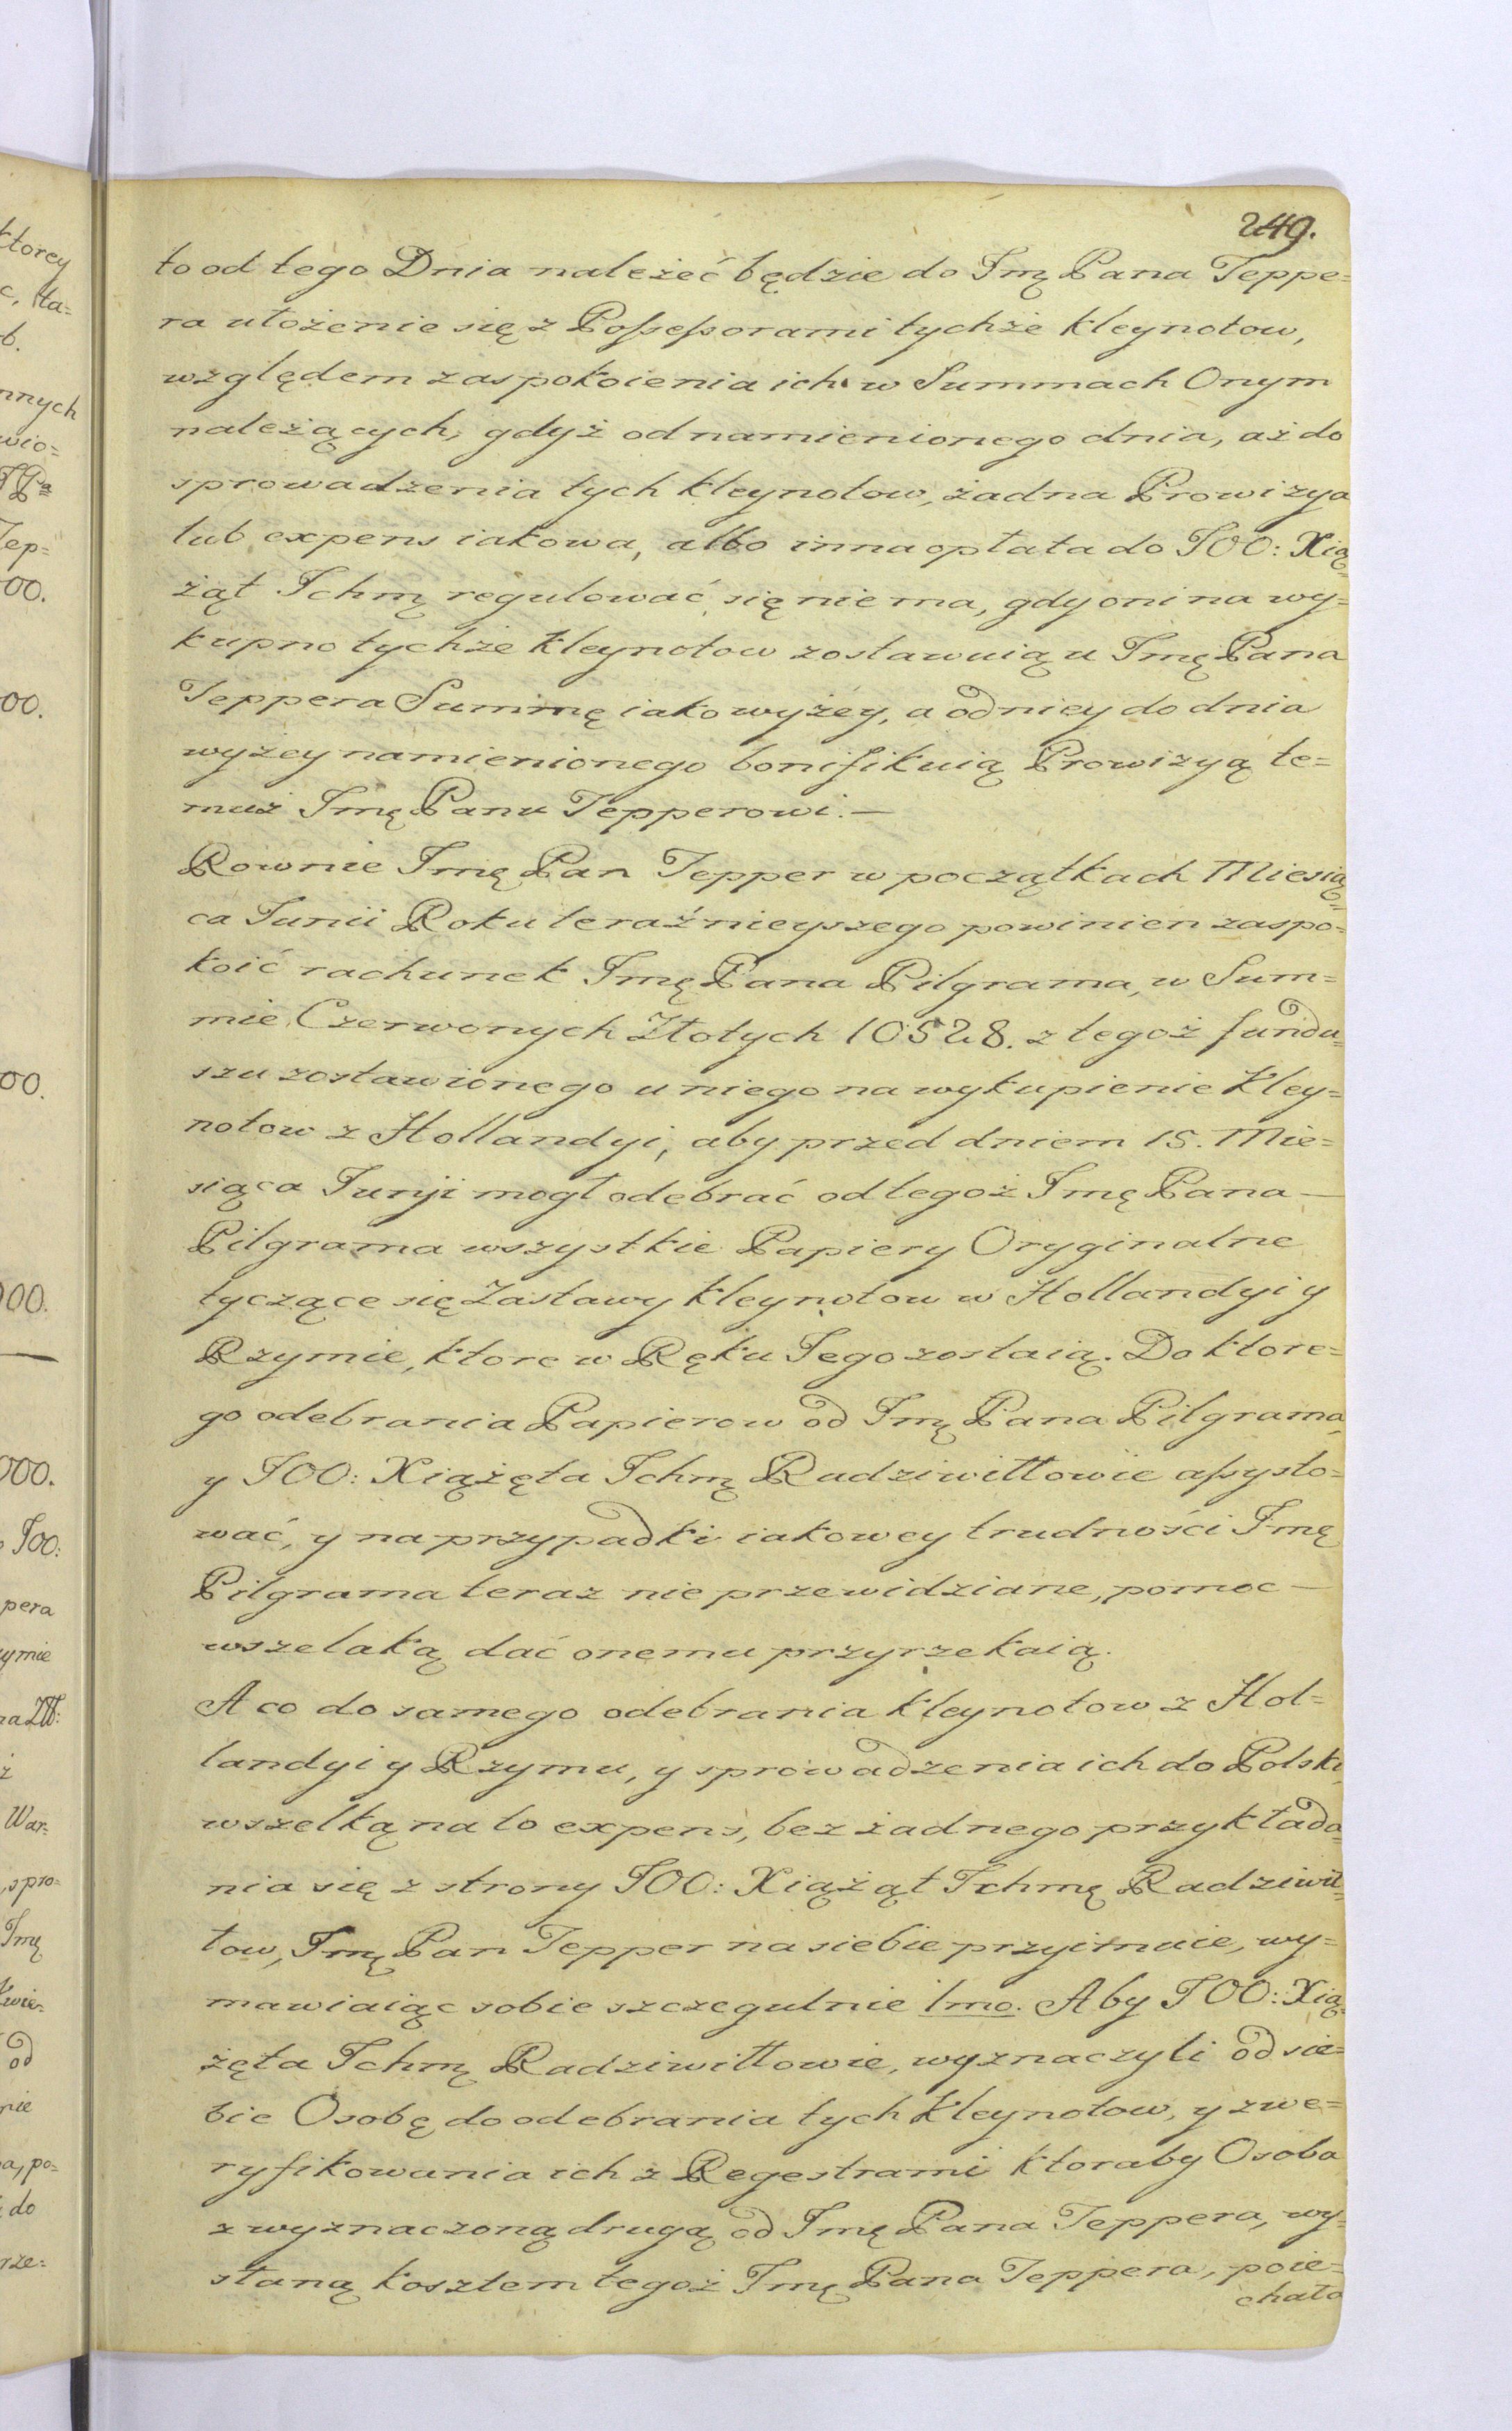 249.
to od tego Dnia należeć będzie do Jmę Pana Teppe=
ra ułożenie się z Possessorami tychże kleynotow,
względem zaspokoienia ich w Summach Onym
należących, gdyż od namienionego dnia, aż do
sprowadzenia tych kleynotow, żadna Prowizya
lub expens iakowa, albo inna opłata do JOO: Xią=
żąt Jchmę regulować się nie ma, gdy oni na wy=
kupno tychże kleynotow zostawuią u Jmę Pana
Teppera Summę iako wyżey, a od niey do dnia
wyżey namienionego bonifikuią Prowizyą te=
muż Jmę Panu Tepperowi. —
Rownie Jmę Pan Tepper w początkach Miesią=
ca Junii Roku teraźnieyszego powinien zaspo=
koić rachunek Jmę Pana Pilgrama, w Sum=
mie Czerwonych Złotych 10528. z tegoż fundu=
szu zostawionego u niego na wykupienie Kley=
notow z Hollandyi, aby przed dniem 15. Mie=
siąca Junji mogł odebrać od tegoż Jmę Pana —
Pilgrama wszystkie Papiery Oryginalne
tyczące się Zastawy kleynotow w Hollandyi y
Rzymie, ktore w Ręku Jego zostaią. Do ktore=
go odebrania Papierow od Jmę Pana Pilgrama,
y JOO: Xiążęta Jchmę Radziwiłłowie assysto=
wać, y na przypadki iakowey trudności Jmę
Pilgrama teraz nie przewidziane, pomoc —
wszelaką dać onemu przyrzekaią.
A co do samego odebrania kleynotow z Hol=
landyi y Rzymu, y sprowadzenia ich do Polski,
wszelką na to expens, bez żadnego przykłada=
nia się z strony JOO: Xiążąt Jchmę Radziwił=
łow, Jmę Pan Tepper na siebie przyimuie, wy=
mawiaiąc sobie szczegulnie 1mo. Aby JOO: Xią=
żęta Jchmę Radziwiłłowie, wyznaczyli od sie=
bie Osobę do odebrania tych Kleynotow, y zwe=
ryfikowania ich z Regestrami ktoraby Osoba
z wyznaczoną drugą od Jmę Pana Teppera, wy=
słaną kosztem tegoż Jmę Pana Teppera, poie=
chała
ktorey
nnych
wio=
Tep=
00.
00.
00.
000.
000.
JOO:
pera
ymie
War=
spro=
Jmę
Kwie=
od
nie
a, po=
do
rze=